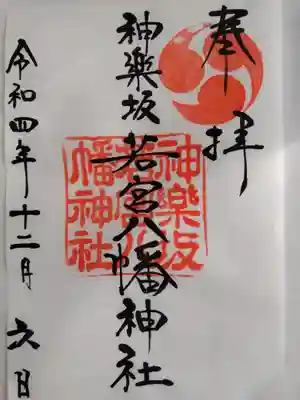 奉拝
神樂坂若宮八幡神社
神樂坂
若宮八
幡神社
令和四年十二月六日